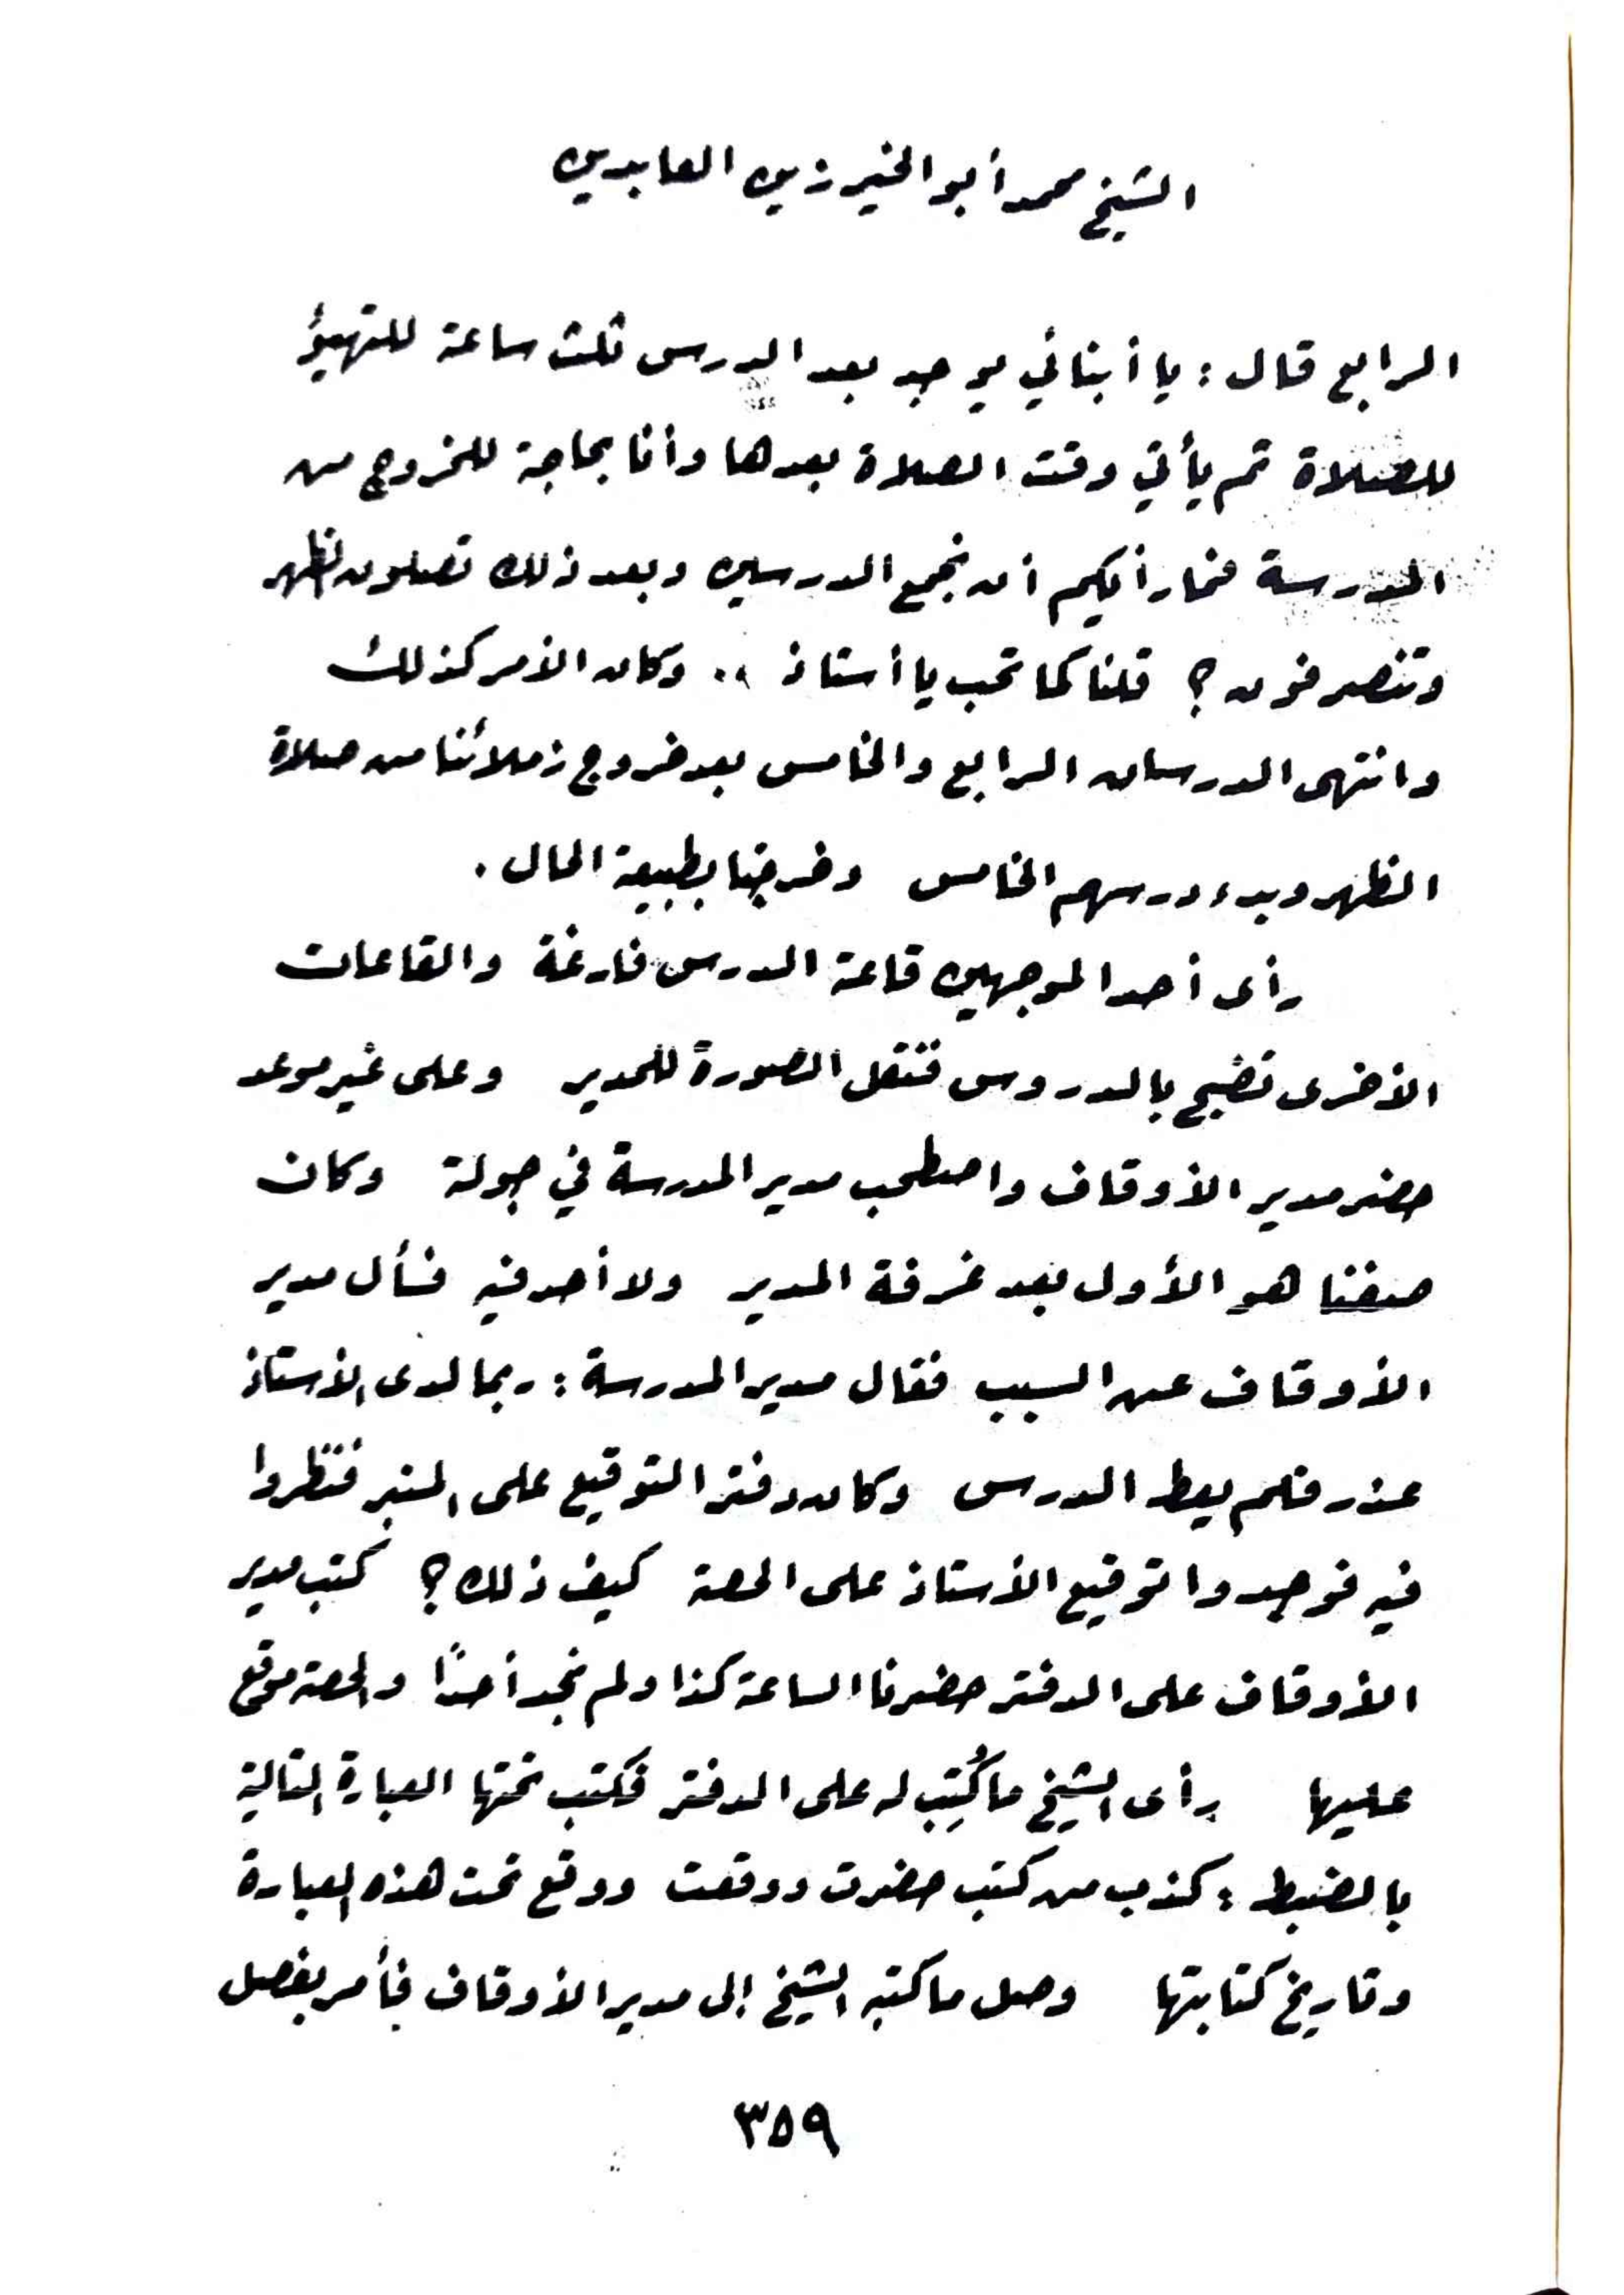 الشيخ محمد أبو الخير زين العابدين
الرابع قال : يا أبنائي يوجد بعد الدرس ثلث ساعة للتهيؤ
للصلاة ثم يأتي وقت الصلاة بعدها وأنا بحاجة للخروج من
المدرسة فما رأيكم أن نجمع الدرسين وبعد ذلك تصلون الظهر
وتنصرفون ؟ قلنا كما تحب يا أستاذ .. وكان الأمر كذلك
وانتهى الدرسان الرابع والخامس بعد خروج زملائنا من صلاة
الظهر وبدء درسهم الخامس وخرجنا بطبيعة الحال .
رأى أحد الموجهين قاعة الدرس فارغة والقاعات
الأخرى تضج بالدروس فنقل الصورة للمدير وعلى غير موعد
حضر مدير الأوقاف واصطحب مدير المدرسة في جولة وكان
صفنا هو الأول بعد غرفة المدير ولا أحد فيه فسأل مدير
الأوقاف عن السبب فقال مدير المدرسة : ربما لدى الأستاذ
عذر فلم يعط الدرس وكان دفتر التوقيع على المنبر فنظروا
فيه فوجدوا توقيع الأستاذ على الحصة كيف ذلك ؟ كتب مدير
الأوقاف على الدفتر حضرنا الساعة كذا ولم نجد أحدًا والحصة موقع
عليها رأى الشيخ ما كُتِب له على الدفتر فكتب تحتها العبارة التالية
بالضبط : كذب من كتب حضرت ووقعت ووقع تحت هذه العبارة
وتاريخ كتابتها وصل ما كتبه الشيخ إلى مدير الأوقاف فأمر بفصل
٣٥٩